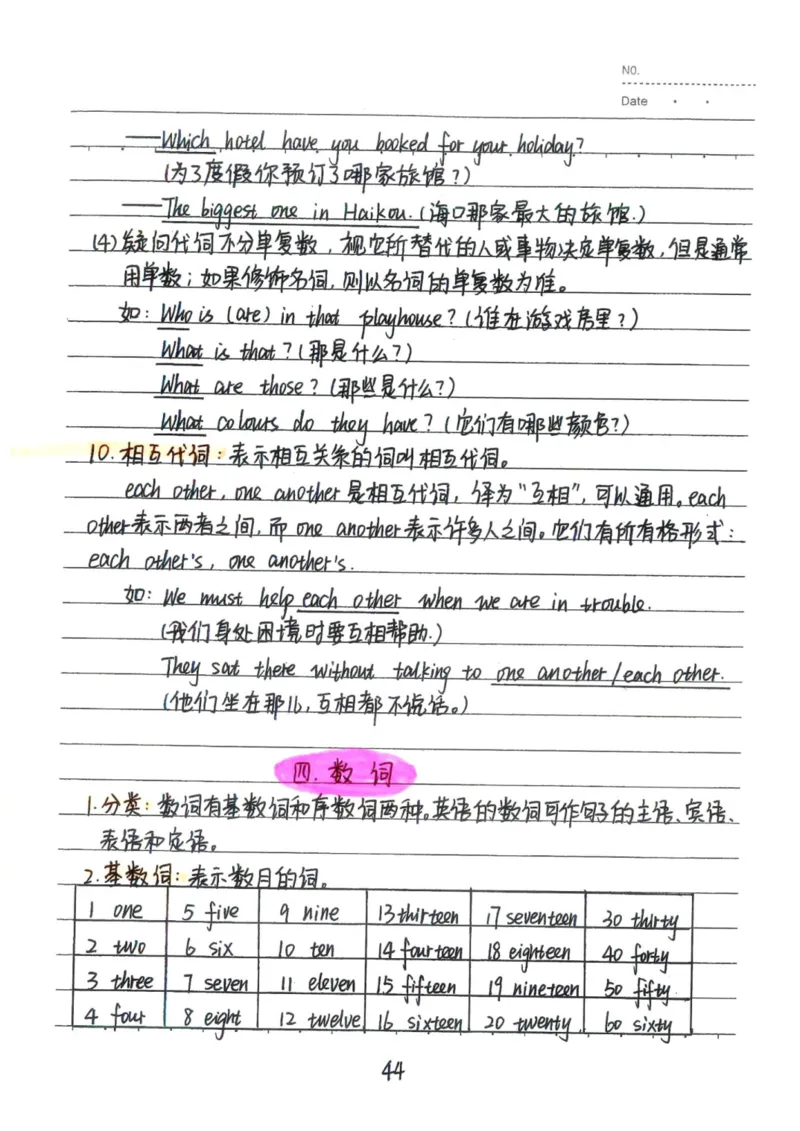 NO.
Date
——Which hotel have you booked for your holiday?
(为了度假你预订了哪家旅馆？)
——The biggest one in Haikou. (海口那家最大的旅馆.)
(4)疑问代词不分单复数，视它所替代的人或事物决定单复数，但是通常
用单数；如果修饰名词，则以名词的单复数为准。
如：Who is (are) in that playhouse? (谁在游戏房里？)
What is that? (那是什么？)
What are those? (那些是什么？)
What colours do they have? (它们有哪些颜色？)
10.相互代词：表示相互关系的词叫相互代词。
each other, one another 是相互代词，译为“互相”，可以通用。each
other表示两者之间，而 one another 表示许多人之间。它们有所有格形式：
each other's, one another's.
如：We must help each other when we are in trouble.
(我们身处困境时要互相帮助.)
They sat there without talking to one another / each other.
(他们坐在那儿，互相都不说话。)
四.数 词
1.分类：数词有基数词和序数词两种。英语的数词可作句子的主语、宾语、
表语和定语。
2.基数词：表示数目的词。
1 one 5 five 9 nine 13 thirteen 17 seventeen 30 thirty
2 two 6 six 10 ten 14 fourteen 18 eighteen 40 forty
3 three 7 seven 11 eleven 15 fifteen 19 nineteen 50 fifty
4 four 8 eight 12 twelve 16 sixteen 20 twenty 60 sixty
44